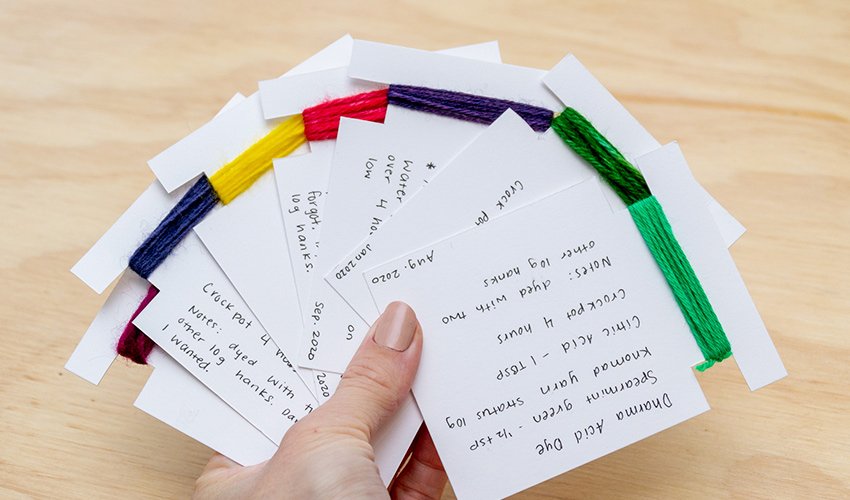 Dharma Acid Dye
Spearmint green - ½ tsp
Knomad yarn Stratus 10g
Citric Acid - 1 TBSP
Crockpot 4 hours
Notes: dyed with two
other 10g hanks
Aug. 2020
Crock pot
Jan 2020
*
Water
over 4 ho
low
forgot
10g hanks.
on
Sep. 2020
Crock pot 4 hou
Notes: dyed with
other 10g hanks. Da
I wanted.
2020